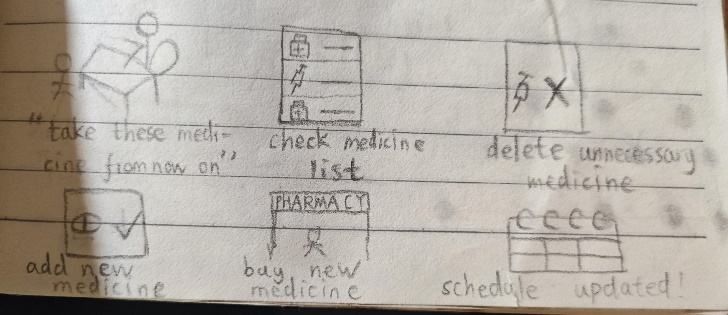 "take these medi-
cine from now on"
check medicine
list
delete unnecessary
medicine
add new
medicine
PHARMACY
buy new
medicine
schedule updated!